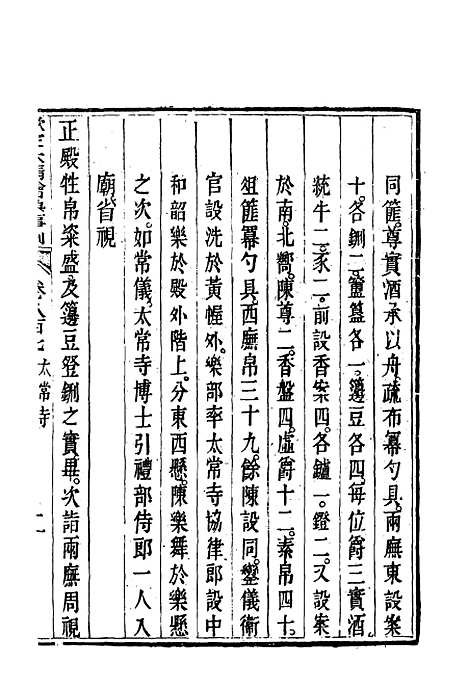 同篚。尊實酒承以舟。疏布冪勺具。兩廡東設案
十。各鉶二。簠簋各一。籩豆各四。每位爵三實酒
統牛二。豕二。前設香案四。各鑪一。鐙二。又設案
於南。北嚮。陳尊二。香盤四。虛爵十二。素帛四十。
俎篚冪勺具。西廡帛三十九。餘陳設同。鑾儀衛
官設洗於黃幄外。樂部率太常寺協律郎設中
和韶樂於殿外階上。分東西懸。陳樂舞於樂懸
之次。如常儀。太常寺博士引禮部侍郎一人入
廟省視
正殿牲帛粢盛及籩豆登鉶之實畢。次詣兩廡周視
欽定大清會典事例 卷八百七 太常寺